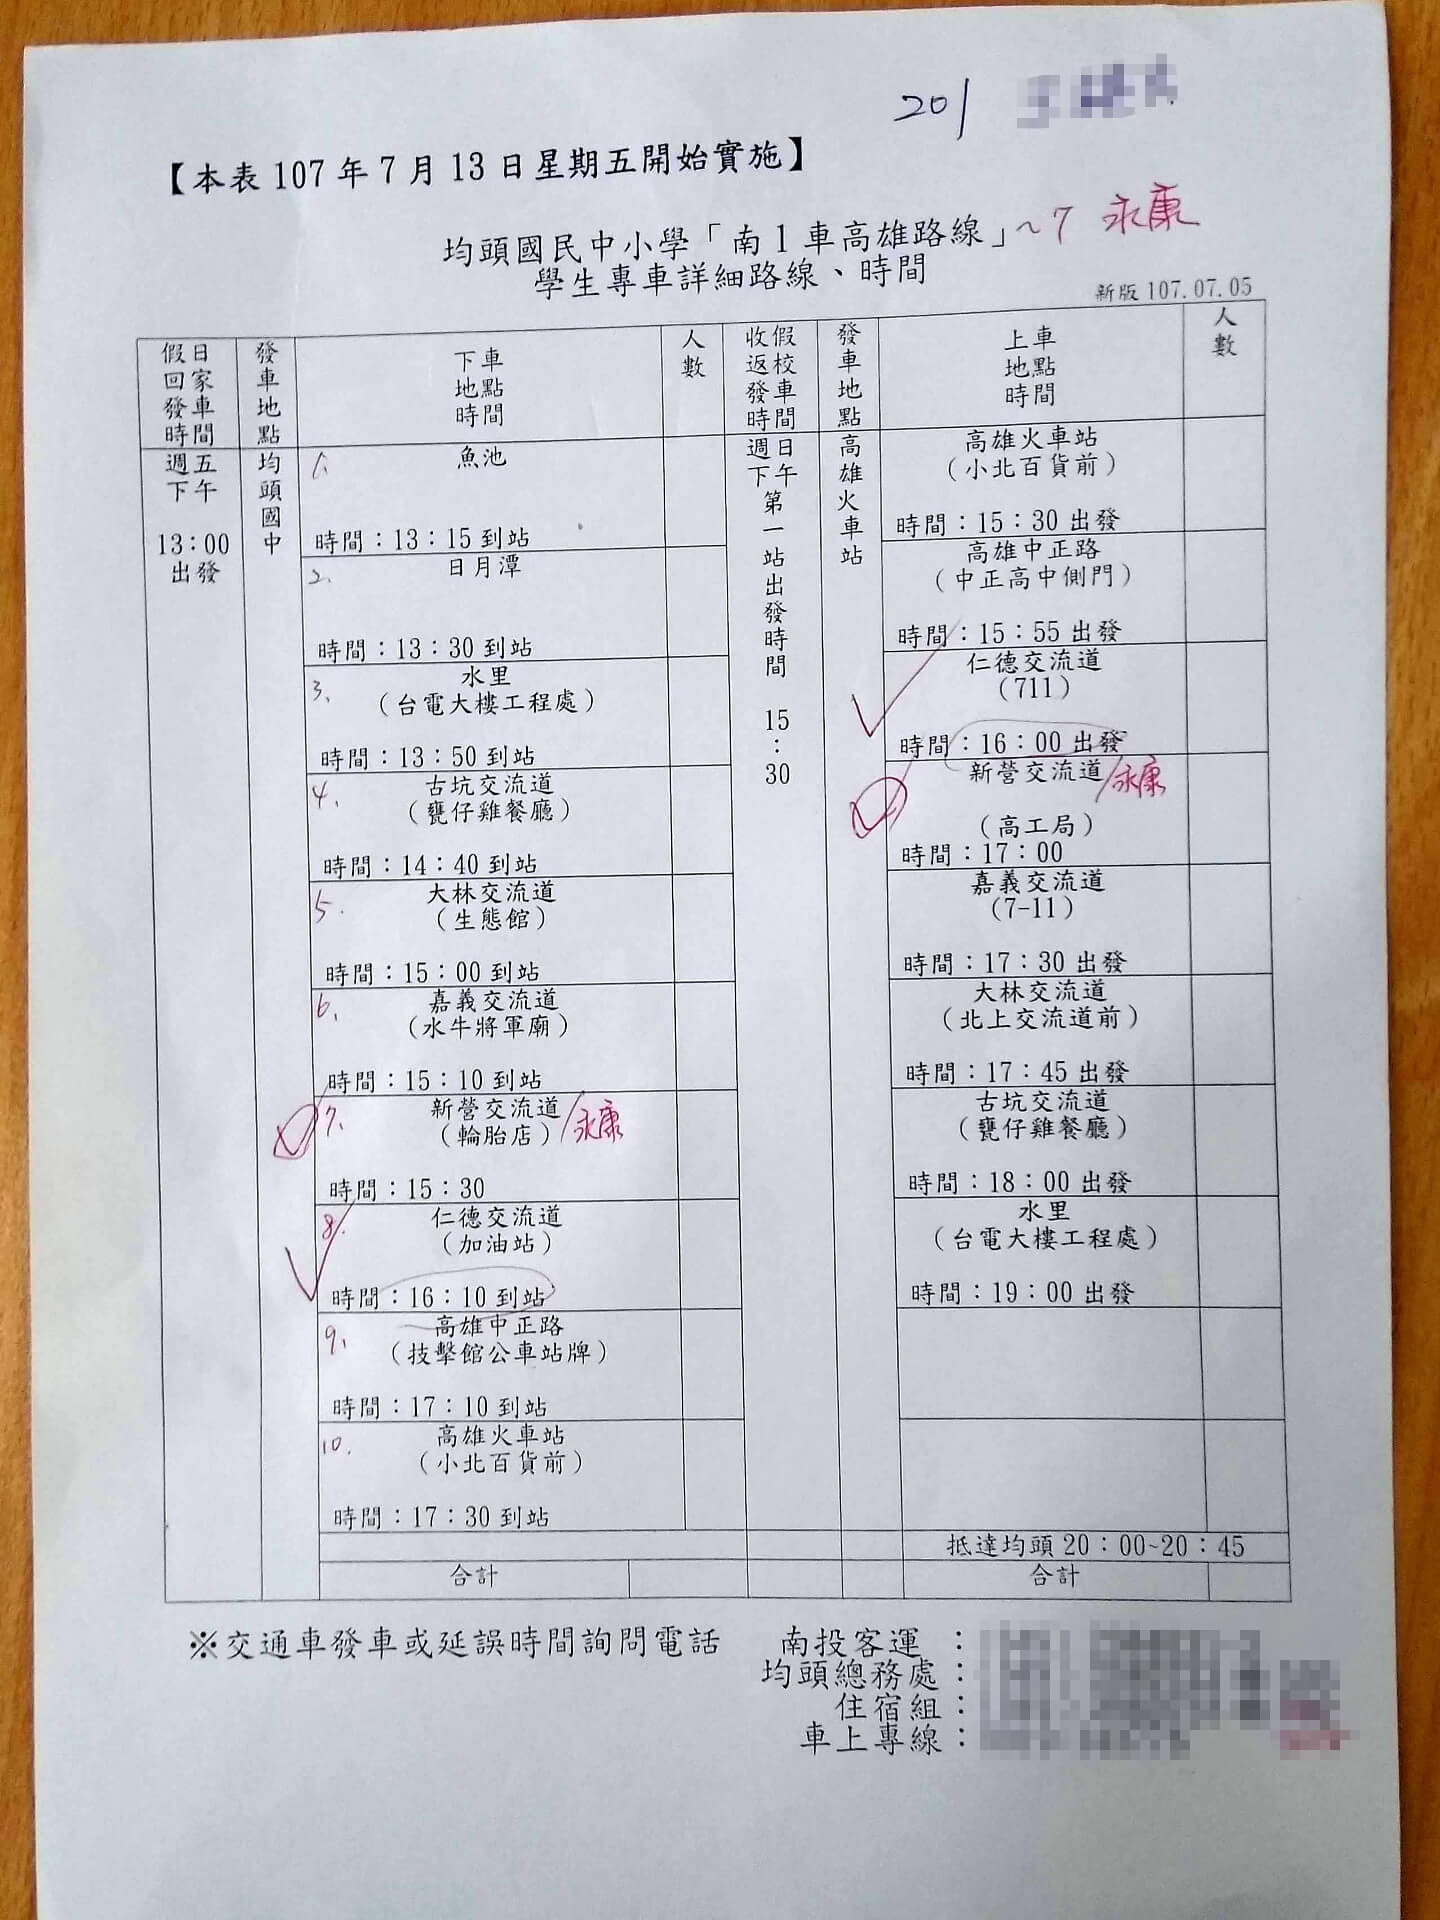 201
【本表 107 年 7 月 13 日星期五開始實施】
均頭國民中小學「南 1 車高雄路線」~7 永康
學生專車詳細路線、時間
新版 107.07.05
假日
回家
發車
時間
發車地點
下車
地點
時間
人數
收假
返校
發車
時間
發車地點
上車
地點
時間
人數
週五
下午
13:00
出發
均頭國中
1.
魚池
時間：13：15 到站
2.
日月潭
時間：13：30 到站
3.
水里
（台電大樓工程處）
時間：13：50 到站
4.
古坑交流道
（甕仔雞餐廳）
時間：14：40 到站
5.
大林交流道
（生態館）
時間：15：00 到站
6.
嘉義交流道
（水牛將軍廟）
時間：15：10 到站
7.
新營交流道
（輪胎店）/永康
時間：15：30
8.
仁德交流道
（加油站）
時間：16：10 到站
9.
高雄中正路
（技擊館公車站牌）
時間：17：10 到站
10.
高雄火車站
（小北百貨前）
時間：17：30 到站
合計
週日
下午
第一站出發時間
15
：
30
高雄火車站
高雄火車站
（小北百貨前）
時間：15：30 出發
高雄中正路
（中正高中側門）
時間：15：55 出發
仁德交流道
（711）
時間：16：00 出發
新營交流道/永康
（高工局）
時間：17：00
嘉義交流道
（7-11）
時間：17：30 出發
大林交流道
（北上交流道前）
時間：17：45 出發
古坑交流道
（甕仔雞餐廳）
時間：18：00 出發
水里
（台電大樓工程處）
時間：19：00 出發
抵達均頭 20：00~20：45
合計
※交通車發車或延誤時間詢問電話
南投客運 ：
均頭總務處：
住宿組：
車上專線：